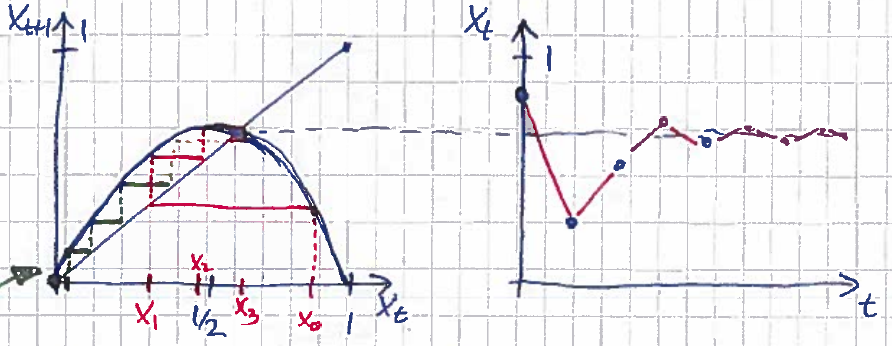 Xt+1
1
X1
X2
1/2
X3
X0
1
Xt
Xt
1
t